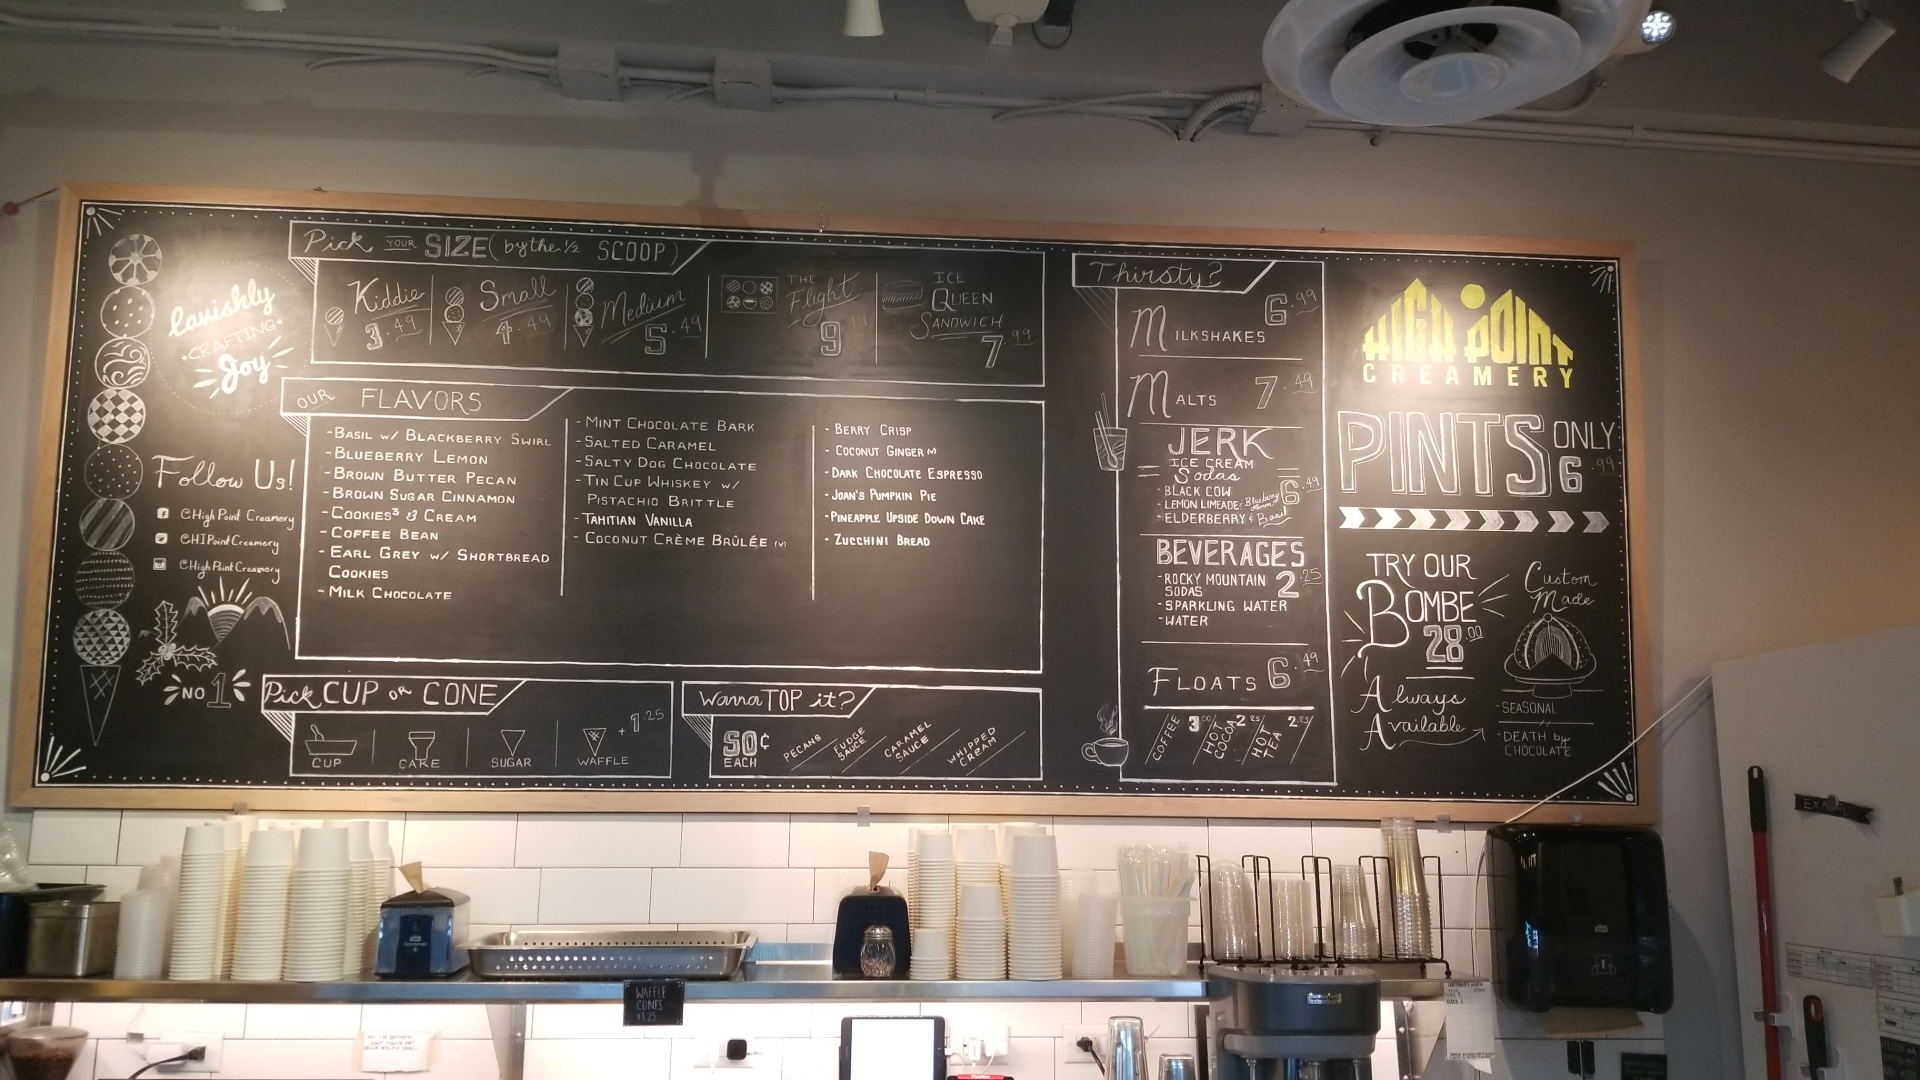 Lavishly
CRAFTING
Joy
Follow Us!
@High Point Creamery
@HIPointCreamery
@High Point Creamery
NO 1
Pick YOUR SIZE (by the 1/2 SCOOP)
Kiddie
3.49
Small
4.49
Medium
5.49
THE
Flight
9
ICE
QUEEN
SANDWICH
7.99
OUR FLAVORS
-BASIL W/ BLACKBERRY SWIRL
-BLUEBERRY LEMON
-BROWN BUTTER PECAN
-BROWN SUGAR CINNAMON
-COOKIES³ & CREAM
-COFFEE BEAN
-EARL GREY W/ SHORTBREAD
COOKIES
-MILK CHOCOLATE
-MINT CHOCOLATE BARK
-SALTED CARAMEL
-SALTY DOG CHOCOLATE
-TIN CUP WHISKEY W/
PISTACHIO BRITTLE
-TAHITIAN VANILLA
-COCONUT CRÈME BRÛLÉE (V)
-BERRY CRISP
-COCONUT GINGER (V)
-DARK CHOCOLATE ESPRESSO
-JOAN'S PUMPKIN PIE
-PINEAPPLE UPSIDE DOWN CAKE
-ZUCCHINI BREAD
Pick CUP OR CONE
CUP
CAKE
SUGAR
WAFFLE
+1.25
Wanna TOP it?
50¢
EACH
PECANS
FUDGE
SAUCE
CARAMEL
SAUCE
WHIPPED
CREAM
Thirsty?
MILKSHAKES 6.99
MALTS 7.49
JERK
ICE CREAM
Sodas
6.49
-BLACK COW
-LEMON LIMEADE: Blueberry Lemon
-ELDERBERRY & Basil
BEVERAGES
-ROCKY MOUNTAIN
SODAS
2.25
-SPARKLING WATER
-WATER
FLOATS 6.49
COFFEE 3.00
HOT
COCOA 2.25
HOT
TEA 2.25
HIGH POINT
CREAMERY
PINTS ONLY
6.99
TRY OUR
BOMBE
28.00
Always
Available
Custom
Made
-SEASONAL
-DEATH by
CHOCOLATE
WAFFLE
CONES
$1.25